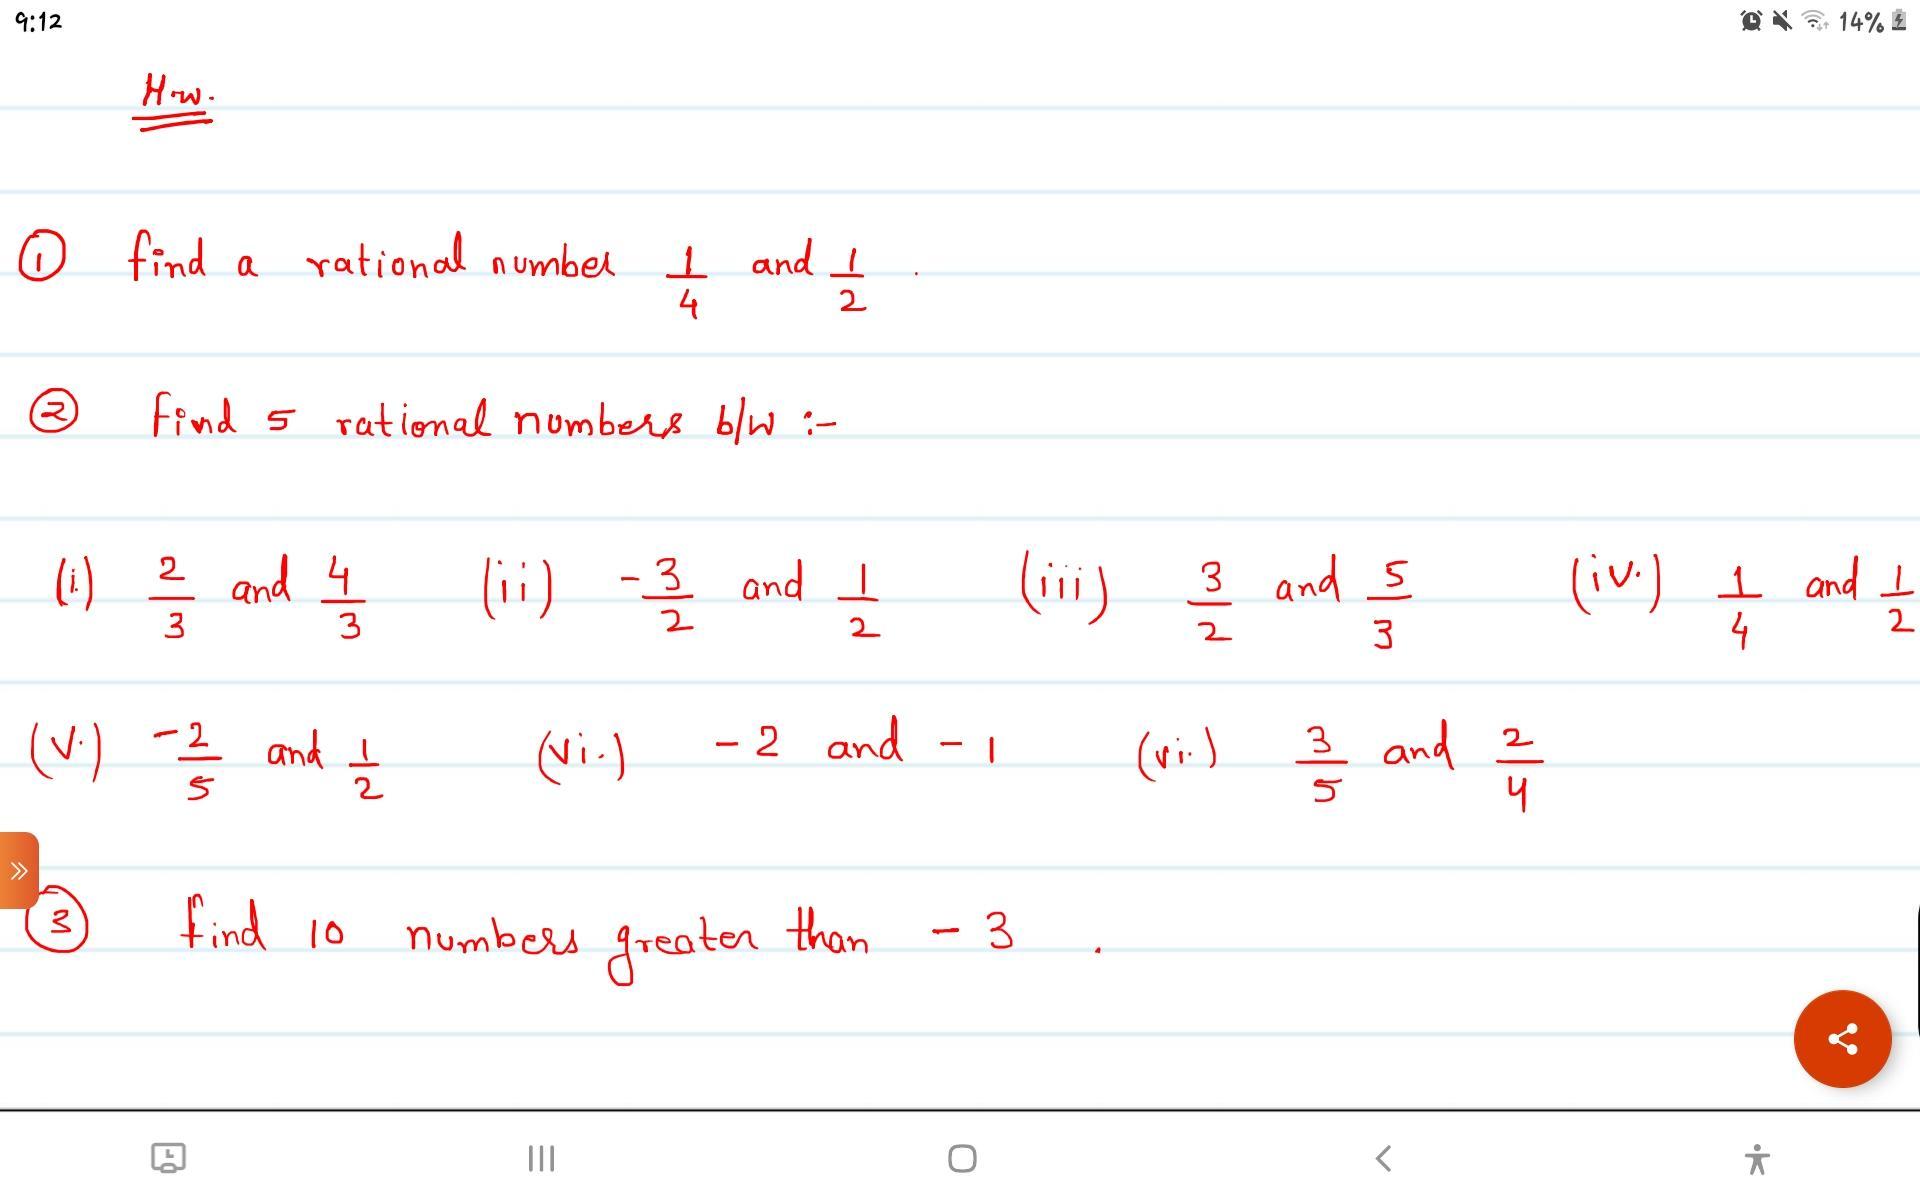 9:12 14%
H.w.
① find a rational number 1/4 and 1/2 .
② Find 5 rational numbers b/w :-
(i.) 2/3 and 4/3 (ii) -3/2 and 1/2 (iii) 3/2 and 5/3 (iv.) 1/4 and 1/2
(v.) -2/5 and 1/2 (vi.) -2 and -1 (vii.) 3/5 and 2/4
③ find 10 numbers greater than -3 .